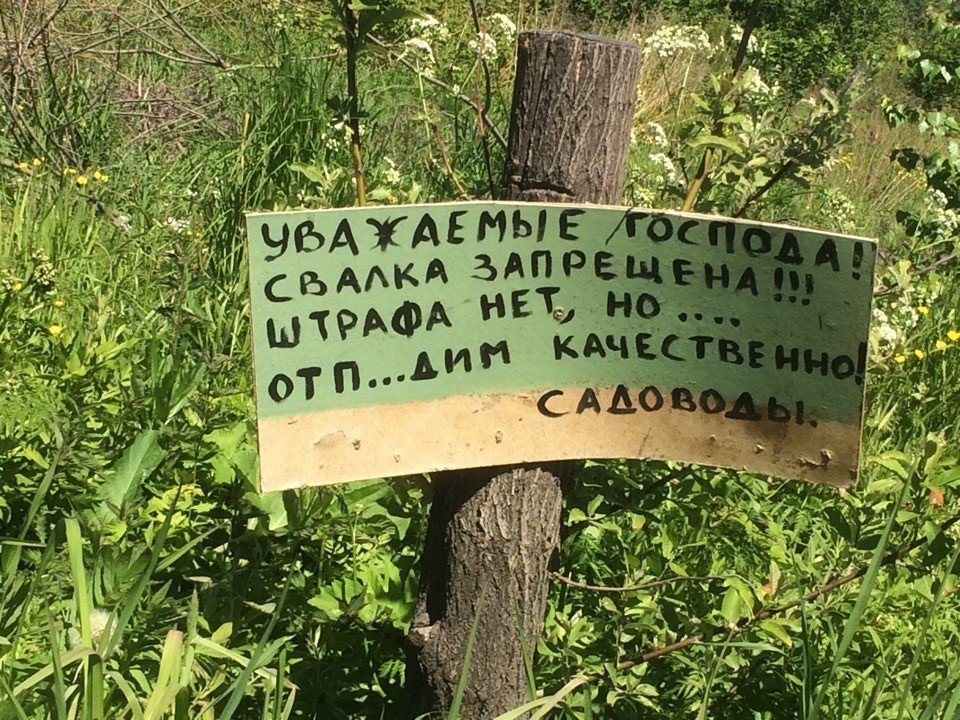 УВАЖАЕМЫЕ ГОСПОДА!
СВАЛКА ЗАПРЕЩЕНА!!!
ШТРАФА НЕТ, НО ....
ОТП...ДИМ КАЧЕСТВЕННО!
САДОВОДЫ.